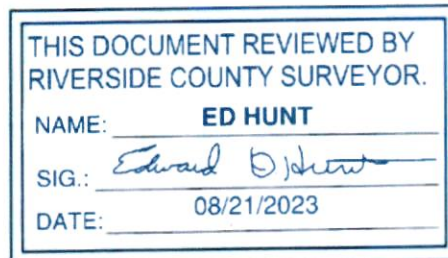 THIS DOCUMENT REVIEWED BY
RIVERSIDE COUNTY SURVEYOR.
NAME: ED HUNT
SIG.: Edward D Hunt
DATE: 08/21/2023